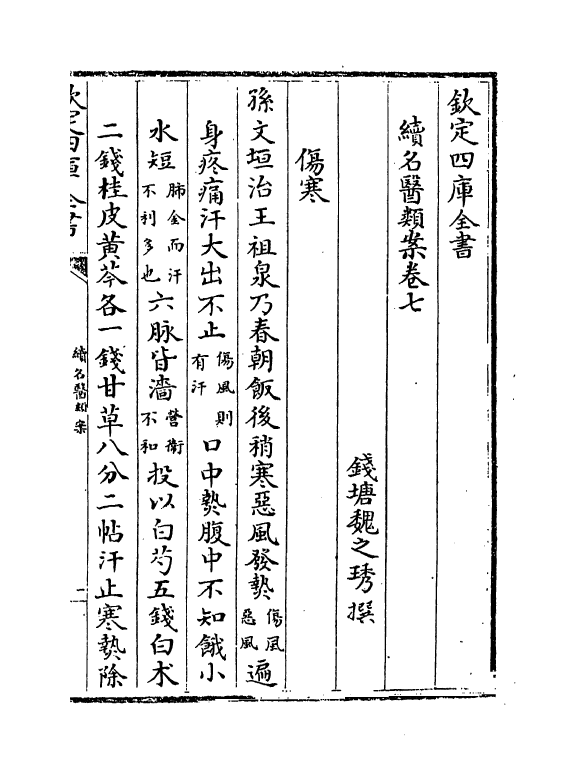 欽定四庫全書
續名醫類案卷七
錢塘魏之琇撰
傷寒
孫文垣治王祖泉乃春朝飯後稍寒惡風發𤍠傷風惡風遍
身疼痛汗大出不止傷風則有汗口中𤍠腹中不知餓小
水短肺金而汗不利多也六脉皆濇營衛不和投以白芍五錢白术
二錢桂皮黄芩各一錢甘草八分二帖汗止寒𤍠除
欽定四庫全書
續名醫類案